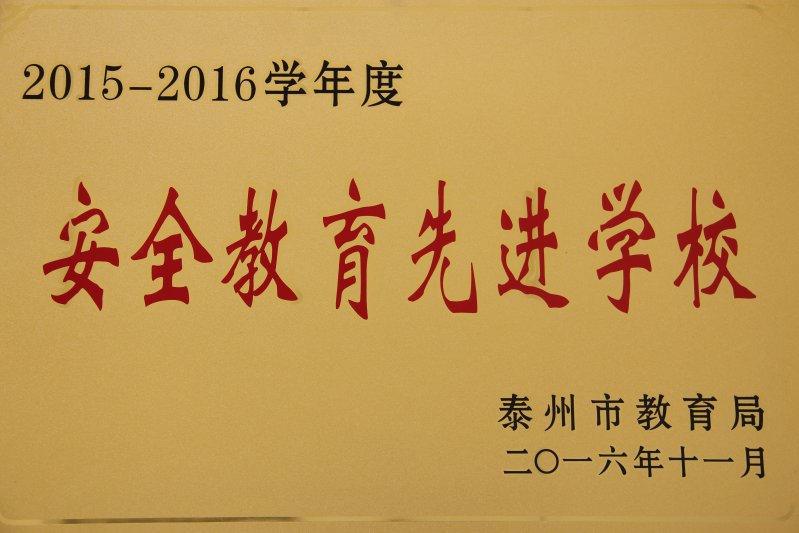 2015-2016学年度
安全教育先进学校
泰州市教育局
二〇一六年十一月